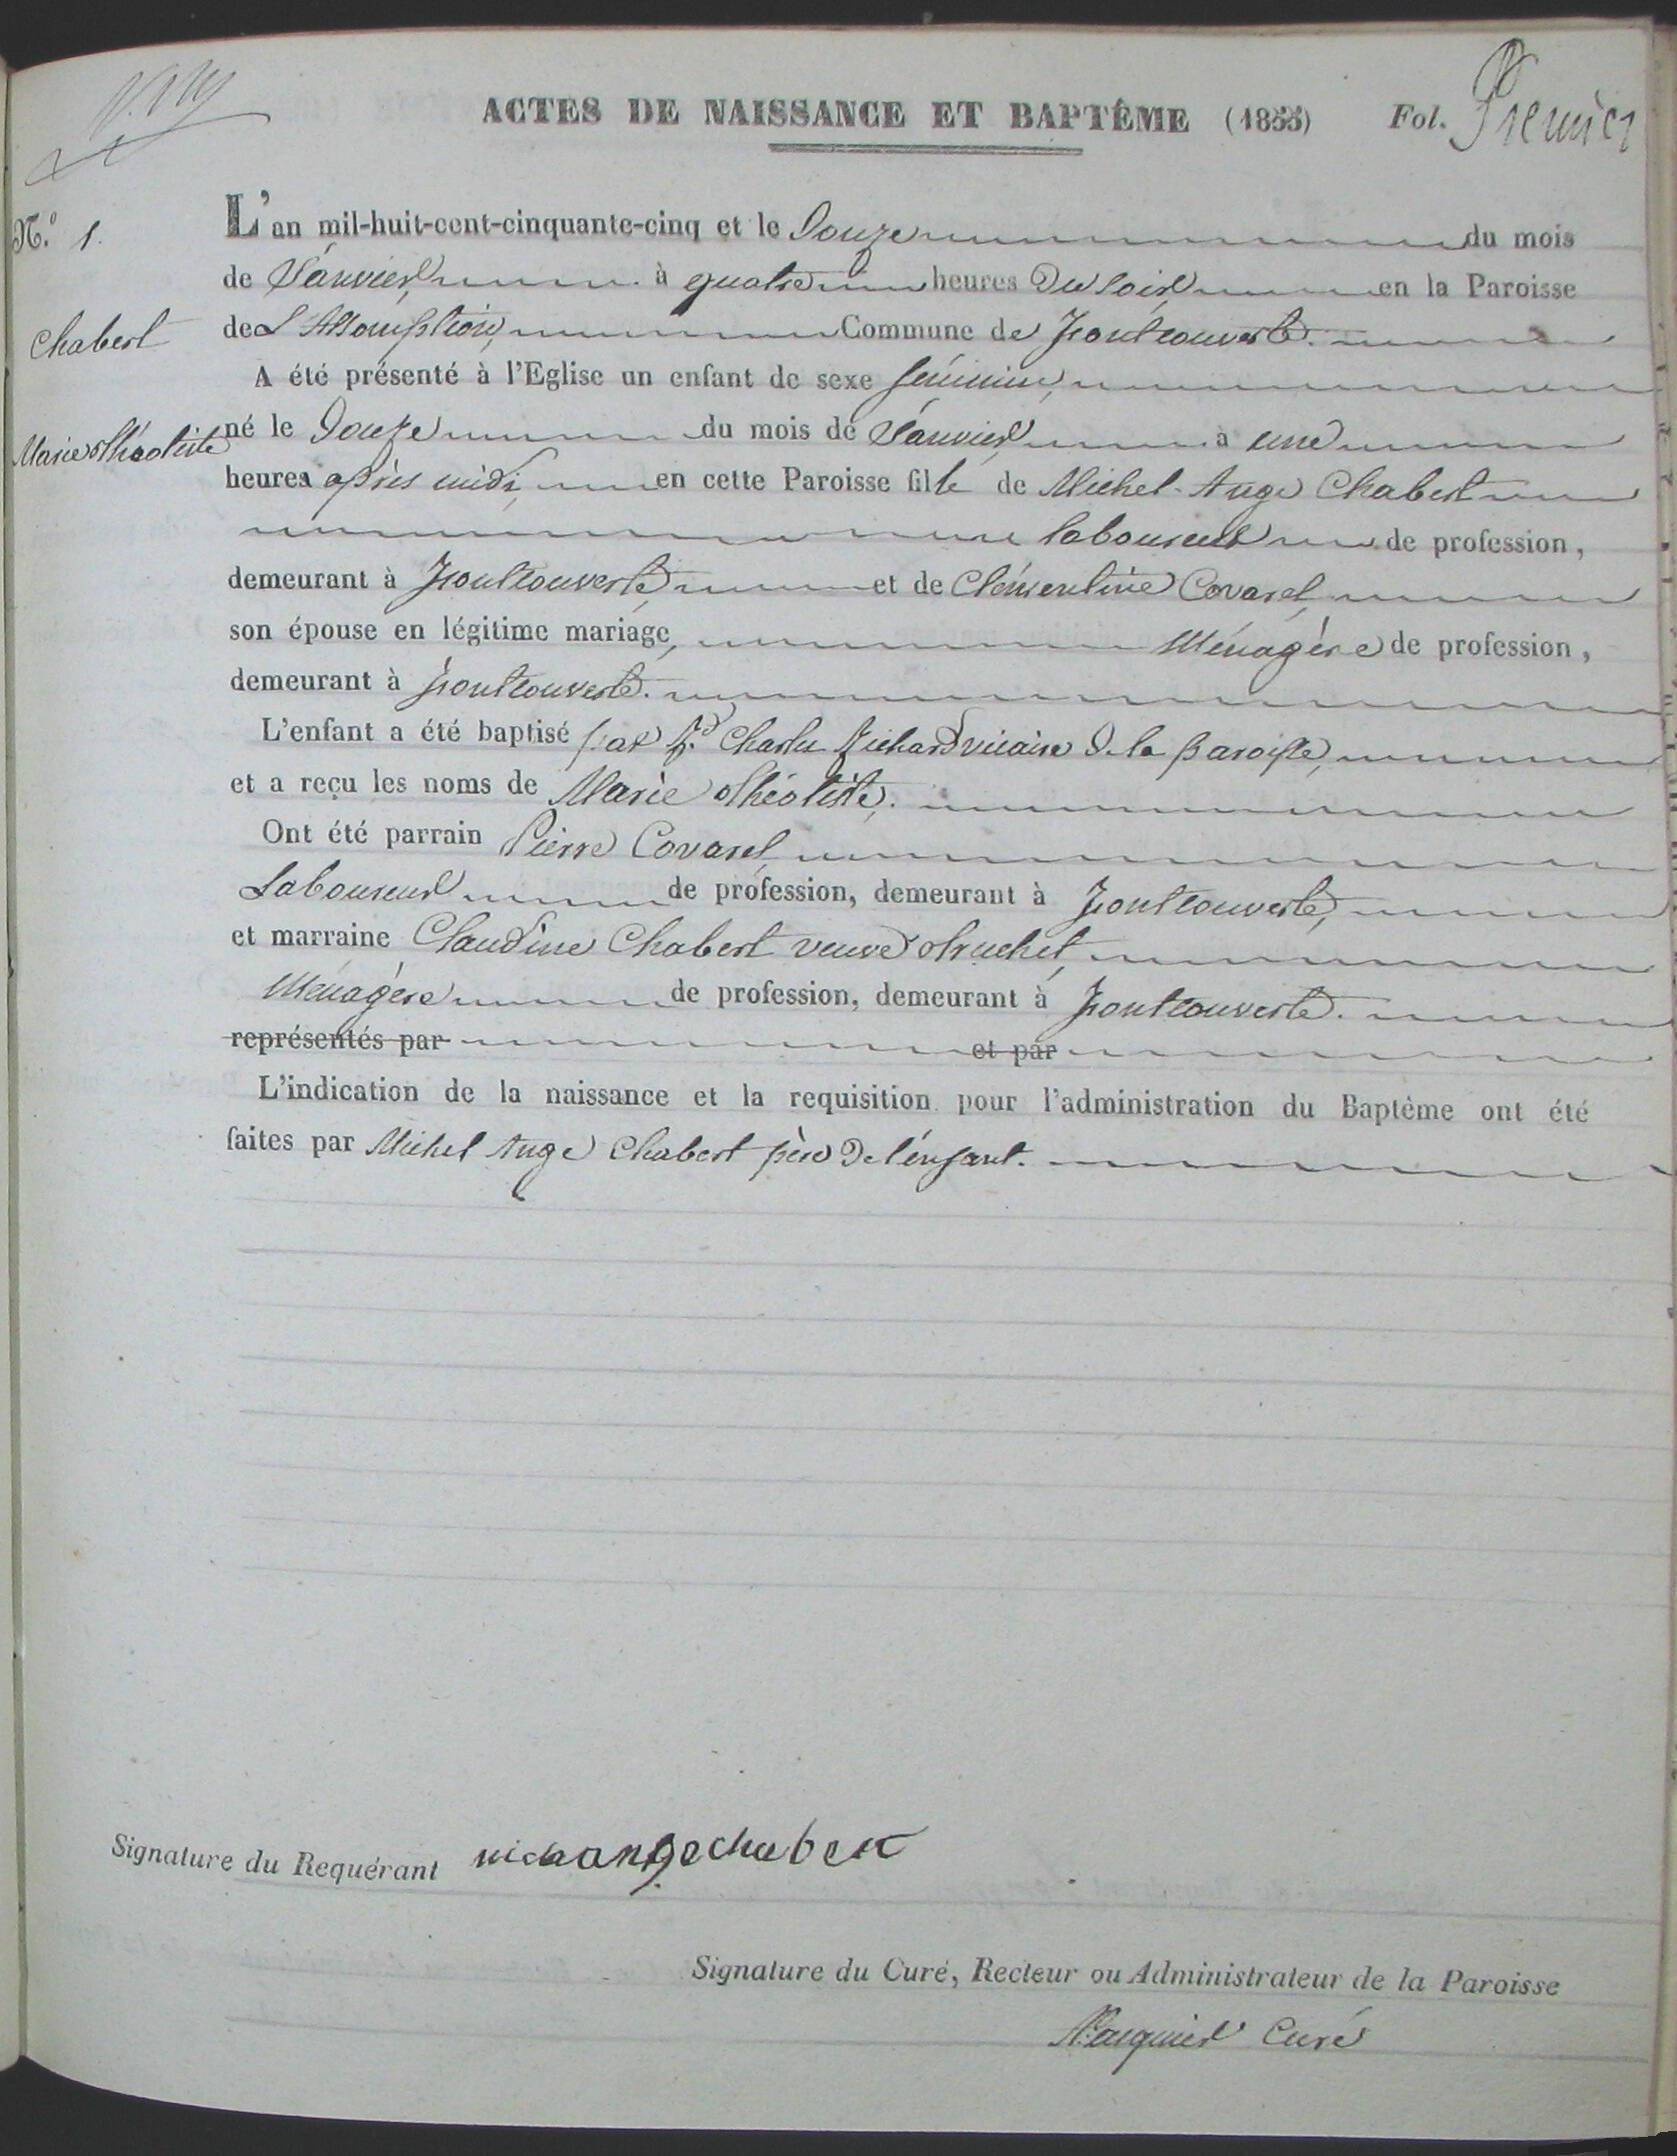 ACTES DE NAISSANCE ET BAPTÊME (1855) Fol. Premier
N.º 1.
L'an mil-huit-cent-cinquante-cinq et le Douze du mois
de Janvier, à quatre heures du soir, en la Paroisse
de L'Assomption, Commune de Fontcouverte.
Chabert
A été présenté à l'Eglise un enfant de sexe féminin,
né le Douze du mois de Janvier, à une
Marie Théotiste
heures après midi, en cette Paroisse fille de Michel-Ange Chabert
laboureur de profession,
demeurant à Fontcouverte, et de Clémentine Covarel,
son épouse en légitime mariage, Ménagère de profession,
demeurant à Fontcouverte.
L'enfant a été baptisé par R.d Charles Richard vicaire de la paroisse,
et a reçu les noms de Marie Théotiste.
Ont été parrain Pierre Covarel,
Laboureur de profession, demeurant à Fontcouverte,
et marraine Claudine Chabert veuve Truchet,
Ménagère de profession, demeurant à Fontcouverte.
représentés par et par
L'indication de la naissance et la requisition pour l'administration du Baptême ont été
faites par Michel Ange Chabert père de l'enfant.
Signature du Requérant
Signature du Curé, Recteur ou Administrateur de la Paroisse
Curé